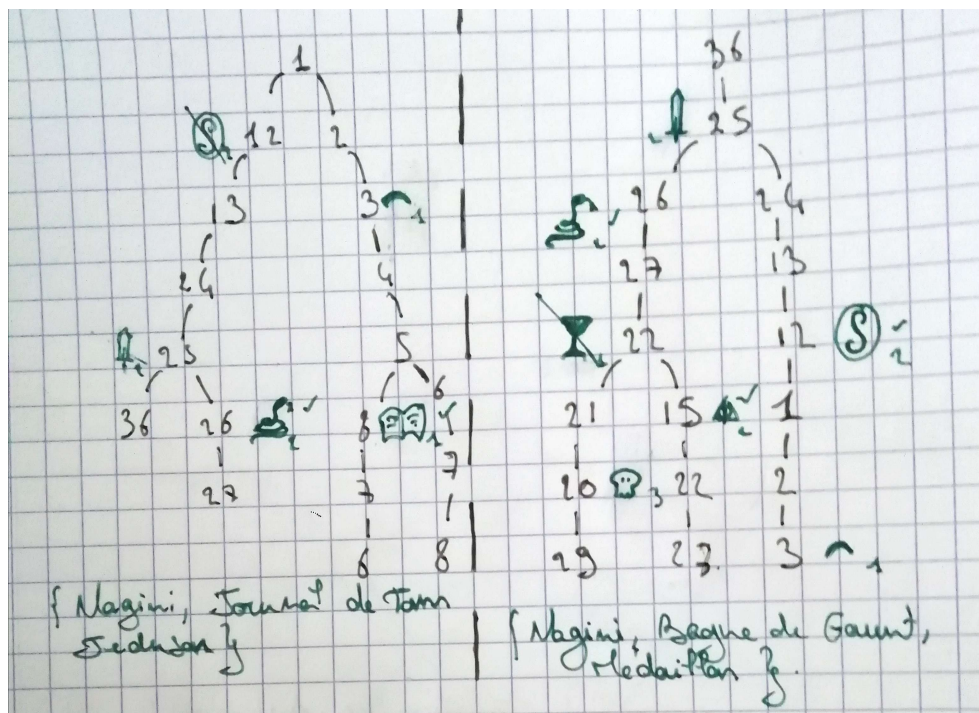 1
12 2
13 3 1
24 4
25 5
36 26 8 6
27 7 7
6 8
{ Nagini, Journal de Tom
Jedusor }
36
25
26 24
27 13
22 12 S 2
21 15 1
20 3 22 2
29 23 3 1
{ Nagini, Bague de Gaunt,
Médaillon }.